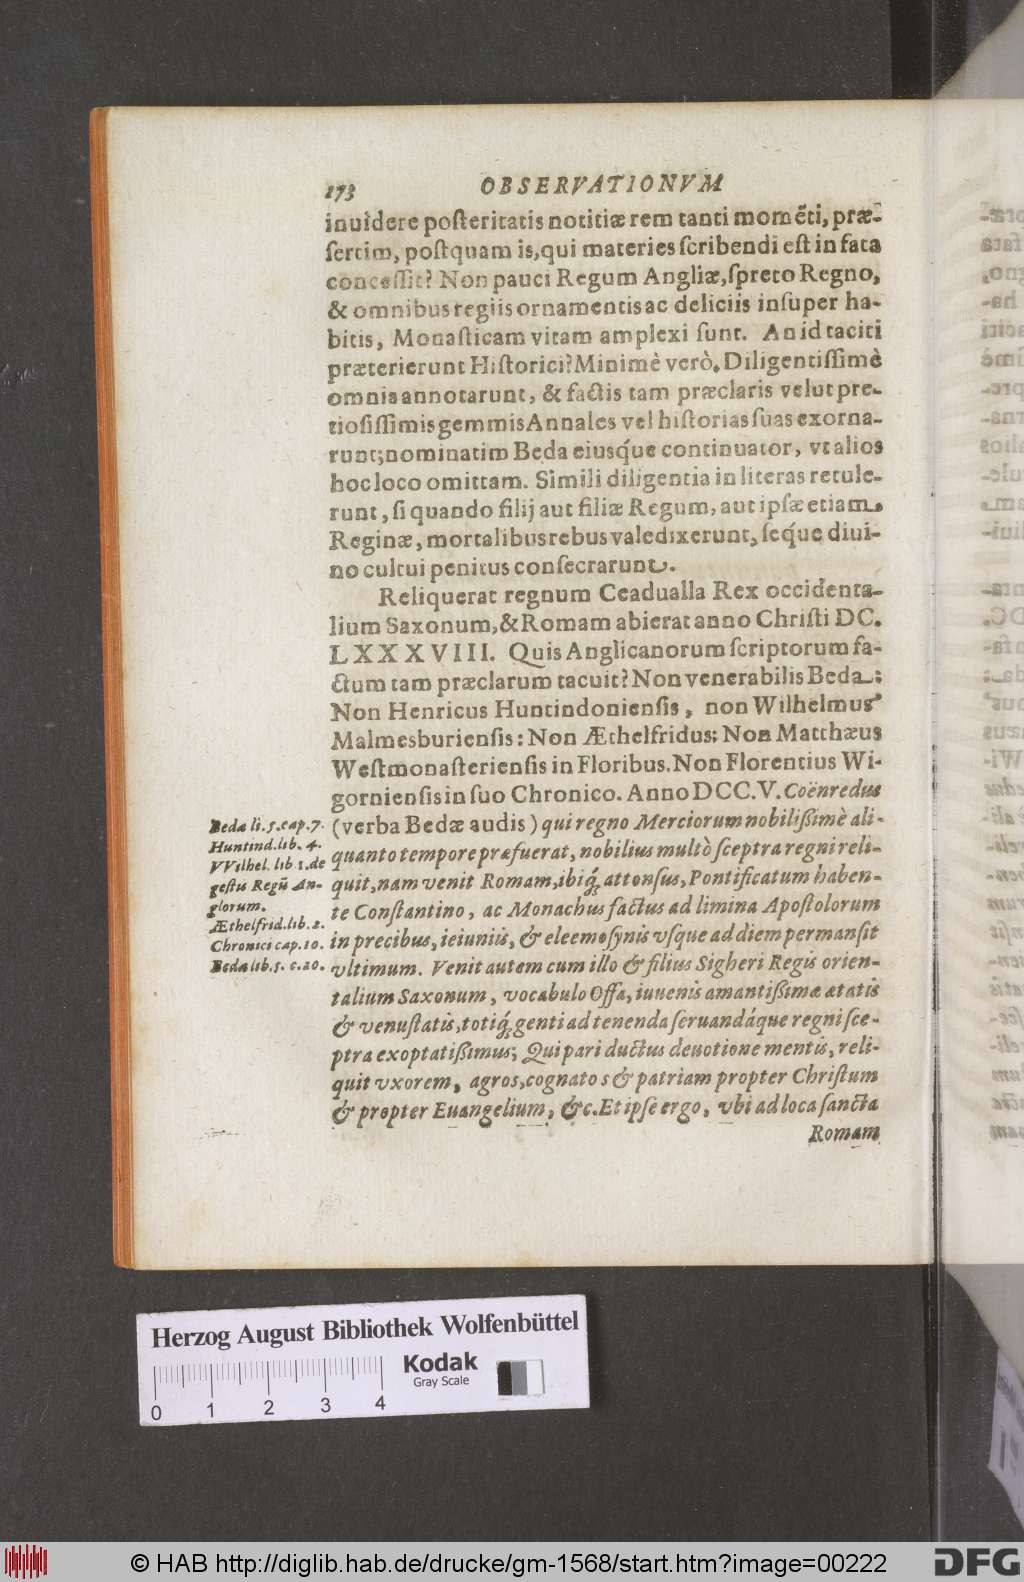 173 OBSERVATIONVM
inuidere poſteritatis notitiæ rem tanti momẽti, præ-
ſertim, poſtquam is, qui materies ſcribendi eſt in fata
conceſſit? Non pauci Regum Angliæ, ſpreto Regno,
& omnibus regiis ornamentis ac deliciis inſuper ha-
bitis, Monaſticam vitam amplexi ſunt. An id taciti
præterierunt Hiſtorici? Minimè verò. Diligentiſſimè
omnia annotarunt, & factis tam præclaris velut pre-
tioſiſſimis gemmis Annales vel hiſtorias ſuas exorna-
runt; nominatim Beda eiusq́ue continuator, vt alios
hoc loco omittam. Simili diligentia in literas retule-
runt, ſi quando filij aut filiæ Regum, aut ipſæ etiam
Reginæ, mortalibus rebus valedixerunt, ſeq́ue diui-
no cultui penitus conſecrarunt.
Reliquerat regnum Ceadualla Rex occidenta-
lium Saxonum, & Romam abierat anno Chriſti DC.
LXXXVIII. Quis Anglicanorum ſcriptorum fa-
ctum tam præclarum tacuit? Non venerabilis Beda:
Non Henricus Huntindonienſis, non Wilhelmus
Malmesburienſis: Non Æthelfridus: Non Matthæus
Weſtmonaſterienſis in Floribus. Non Florentius Wi-
gornienſis in ſuo Chronico. Anno DCC.V. Coënredus
(verba Bedæ audis) qui regno Merciorum nobilißimè ali-
quanto tempore præfuerat, nobilius multò ſceptra regni reli-
quit, nam venit Romam, ibiq́; attonſus, Pontificatum haben-
te Conſtantino, ac Monachus factus ad limina Apoſtolorum
in precibus, ieiuniis, & eleemoſynis vſque ad diem permanſit
vltimum. Venit autem cum illo & filius Sigheri Regis orien-
talium Saxonum, vocabulo Offa, iuuenis amantißimæ ætatis
& venuſtatis, totiq́; genti ad tenenda ſeruandáque regni ſce-
ptra exoptatißimus; Qui pari ductus deuotione mentis, reli-
quit vxorem, agros, cognatos & patriam propter Chriſtum
& propter Euangelium, &c. Et ipſe ergo, vbi ad loca ſancta
Romam
Beda li. 5. cap. 7.
Huntind. lib. 4.
VVilhel. lib 1. de
geſtis Regũ An-
glorum.
Æthelfrid. lib. 2.
Chronici cap. 10.
Beda lib. 5. c. 20.
Herzog August Bibliothek Wolfenbüttel
Kodak
Gray Scale
0 1 2 3 4
© HAB http://diglib.hab.de/drucke/gm-1568/start.htm?image=00222
DFG